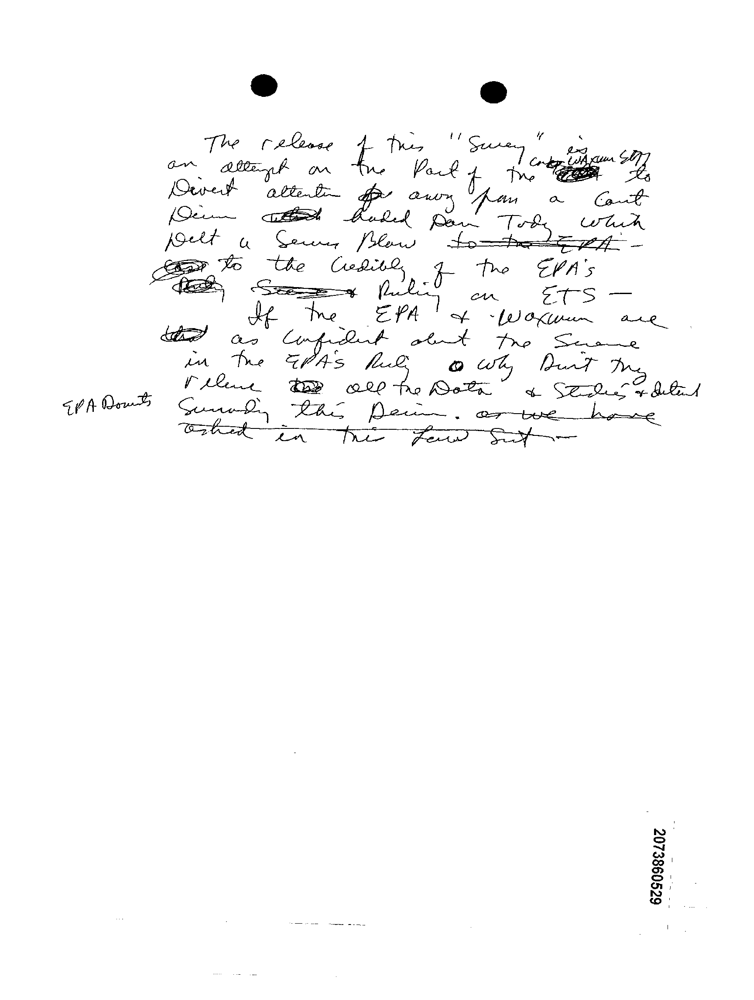 The release of this "Survey" is
an attempt on the Part of the Waxman to
Divert attention away from a Court
handed Down Today which
Delt a Severe Blow to the EPA -
to the Credibility of the EPA's
Ruling on ETS -
If the EPA & Waxman are
as Confident about the Science
in the EPA's Ruling why Don't they
release all the Data & Studies &
EPA
Surrounding this as we have
asked in this Law Suit -
2073860529